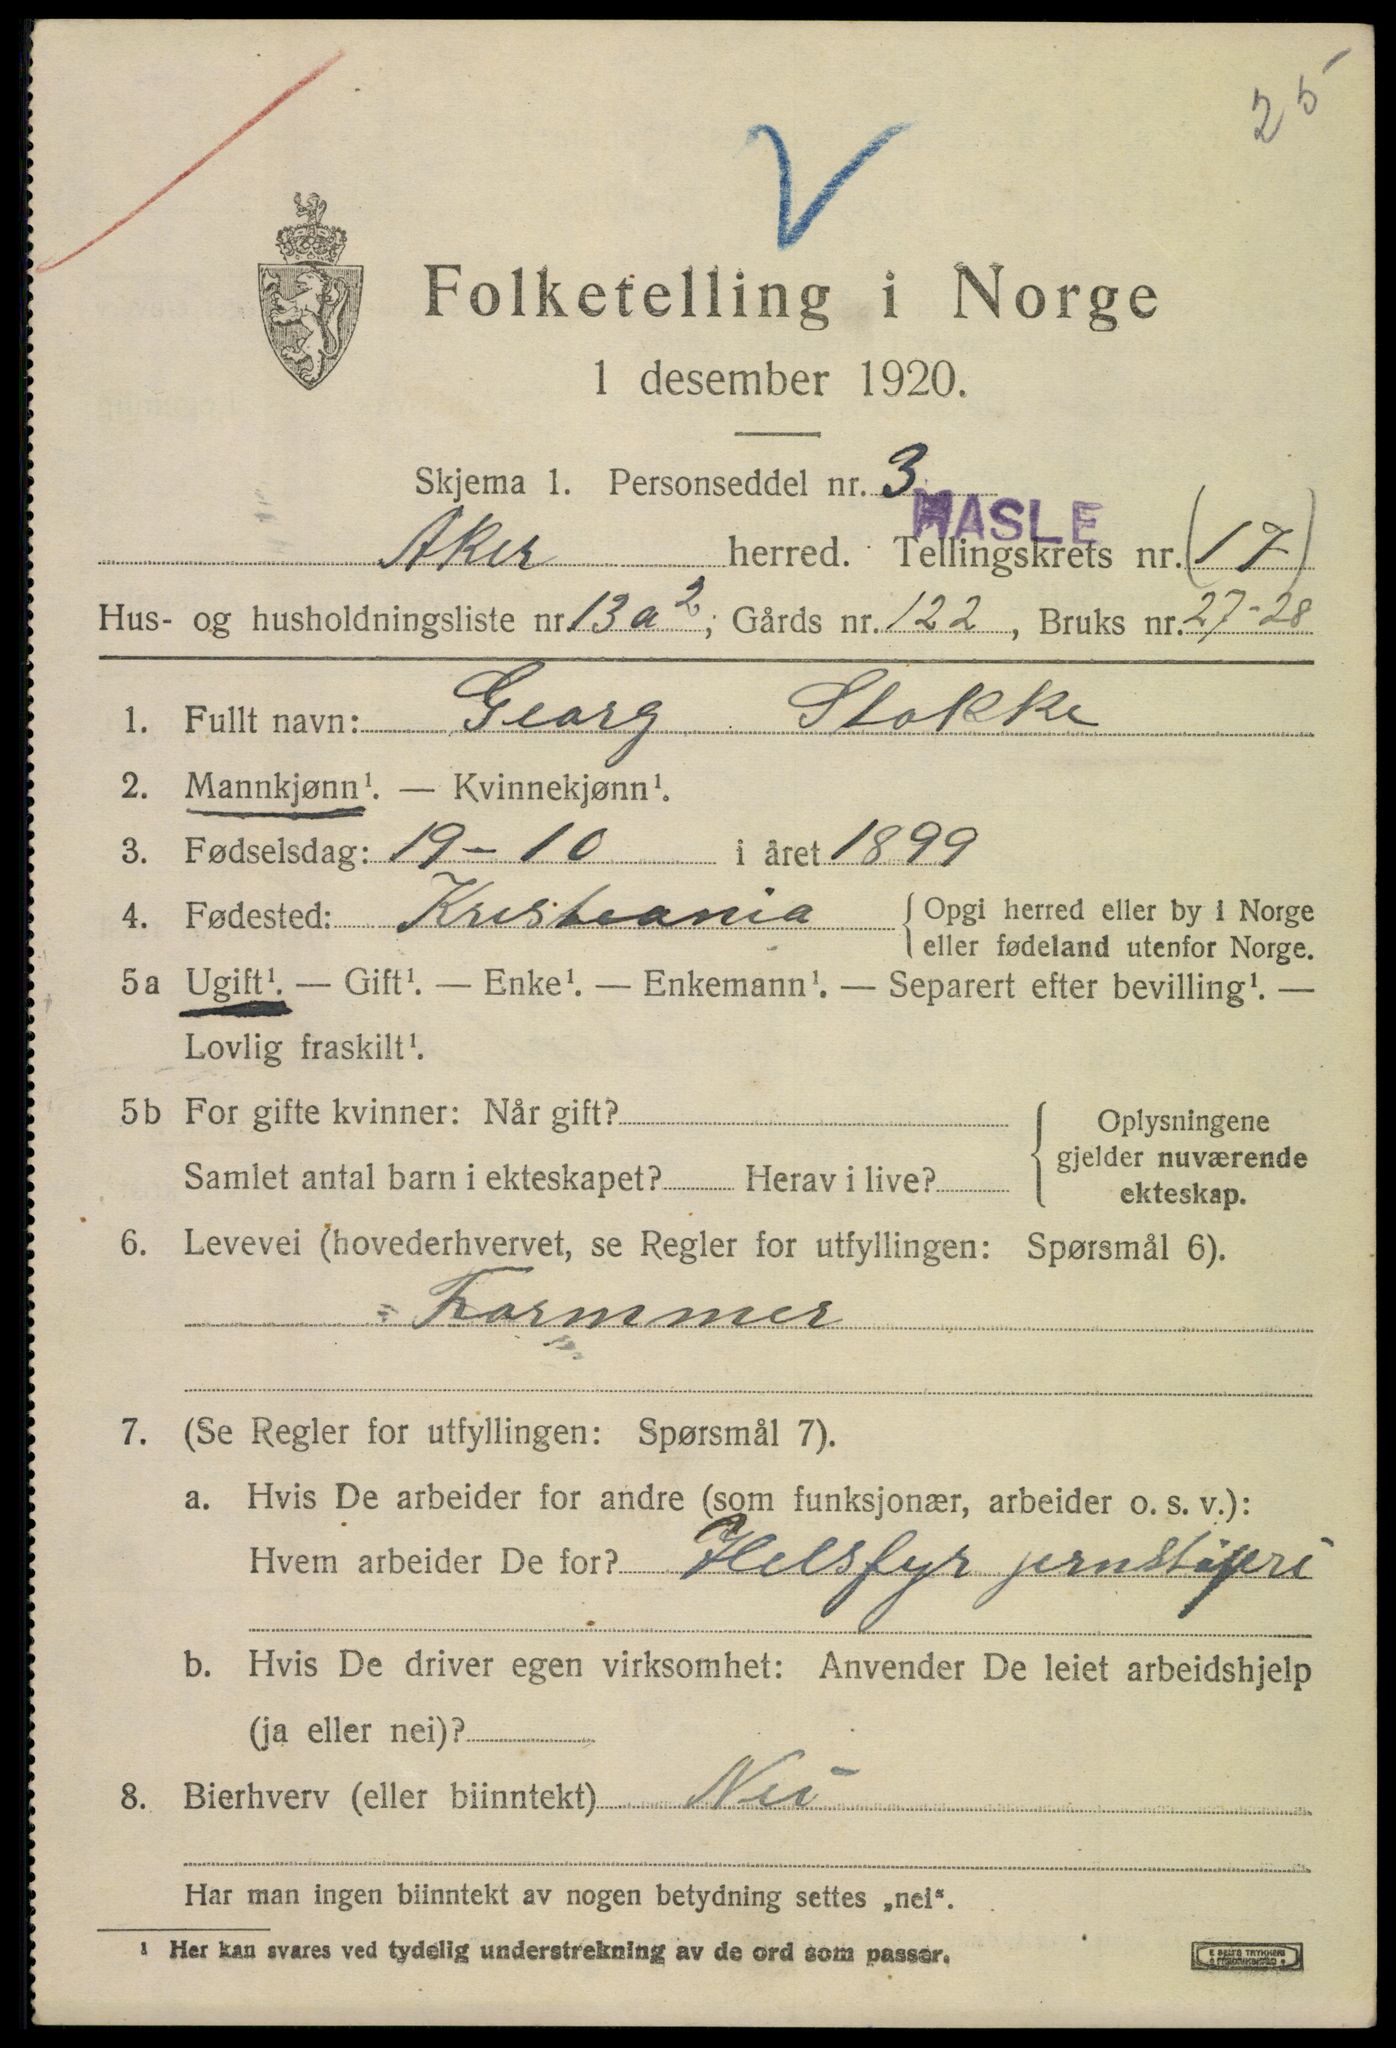 25
V
Folketelling i Norge
1 desember 1920.
Skjema 1. Personseddel nr. 3
HASLE
Aker herred. Tellingskrets nr. (17)
Hus- og husholdningsliste nr. 13a2; Gårds nr. 122, Bruks nr. 27-28
1. Fullt navn: Georg Stokke
2. Mannkjønn¹. — Kvinnekjønn¹.
3. Fødselsdag: 19-10 i året 1899
4. Fødested: Kristiania { Opgi herred eller by i Norge
eller fødeland utenfor Norge.
5a Ugift¹. — Gift¹. — Enke¹. — Enkemann¹. — Separert efter bevilling¹. —
Lovlig fraskilt¹.
5b For gifte kvinner: Når gift?
Samlet antal barn i ekteskapet? Herav i live?
{ Oplysningene
gjelder nuværende
ekteskap.
6. Levevei (hovederhvervet, se Regler for utfyllingen: Spørsmål 6).
Formmer
7. (Se Regler for utfyllingen: Spørsmål 7).
a. Hvis De arbeider for andre (som funksjonær, arbeider o. s. v.):
Hvem arbeider De for? Helsfyr jernstøperi
b. Hvis De driver egen virksomhet: Anvender De leiet arbeidshjelp
(ja eller nei)?
8. Bierhverv (eller biinntekt) Nei
Har man ingen biinntekt av nogen betydning settes „nei“.
¹ Her kan svares ved tydelig understrekning av de ord som passer.